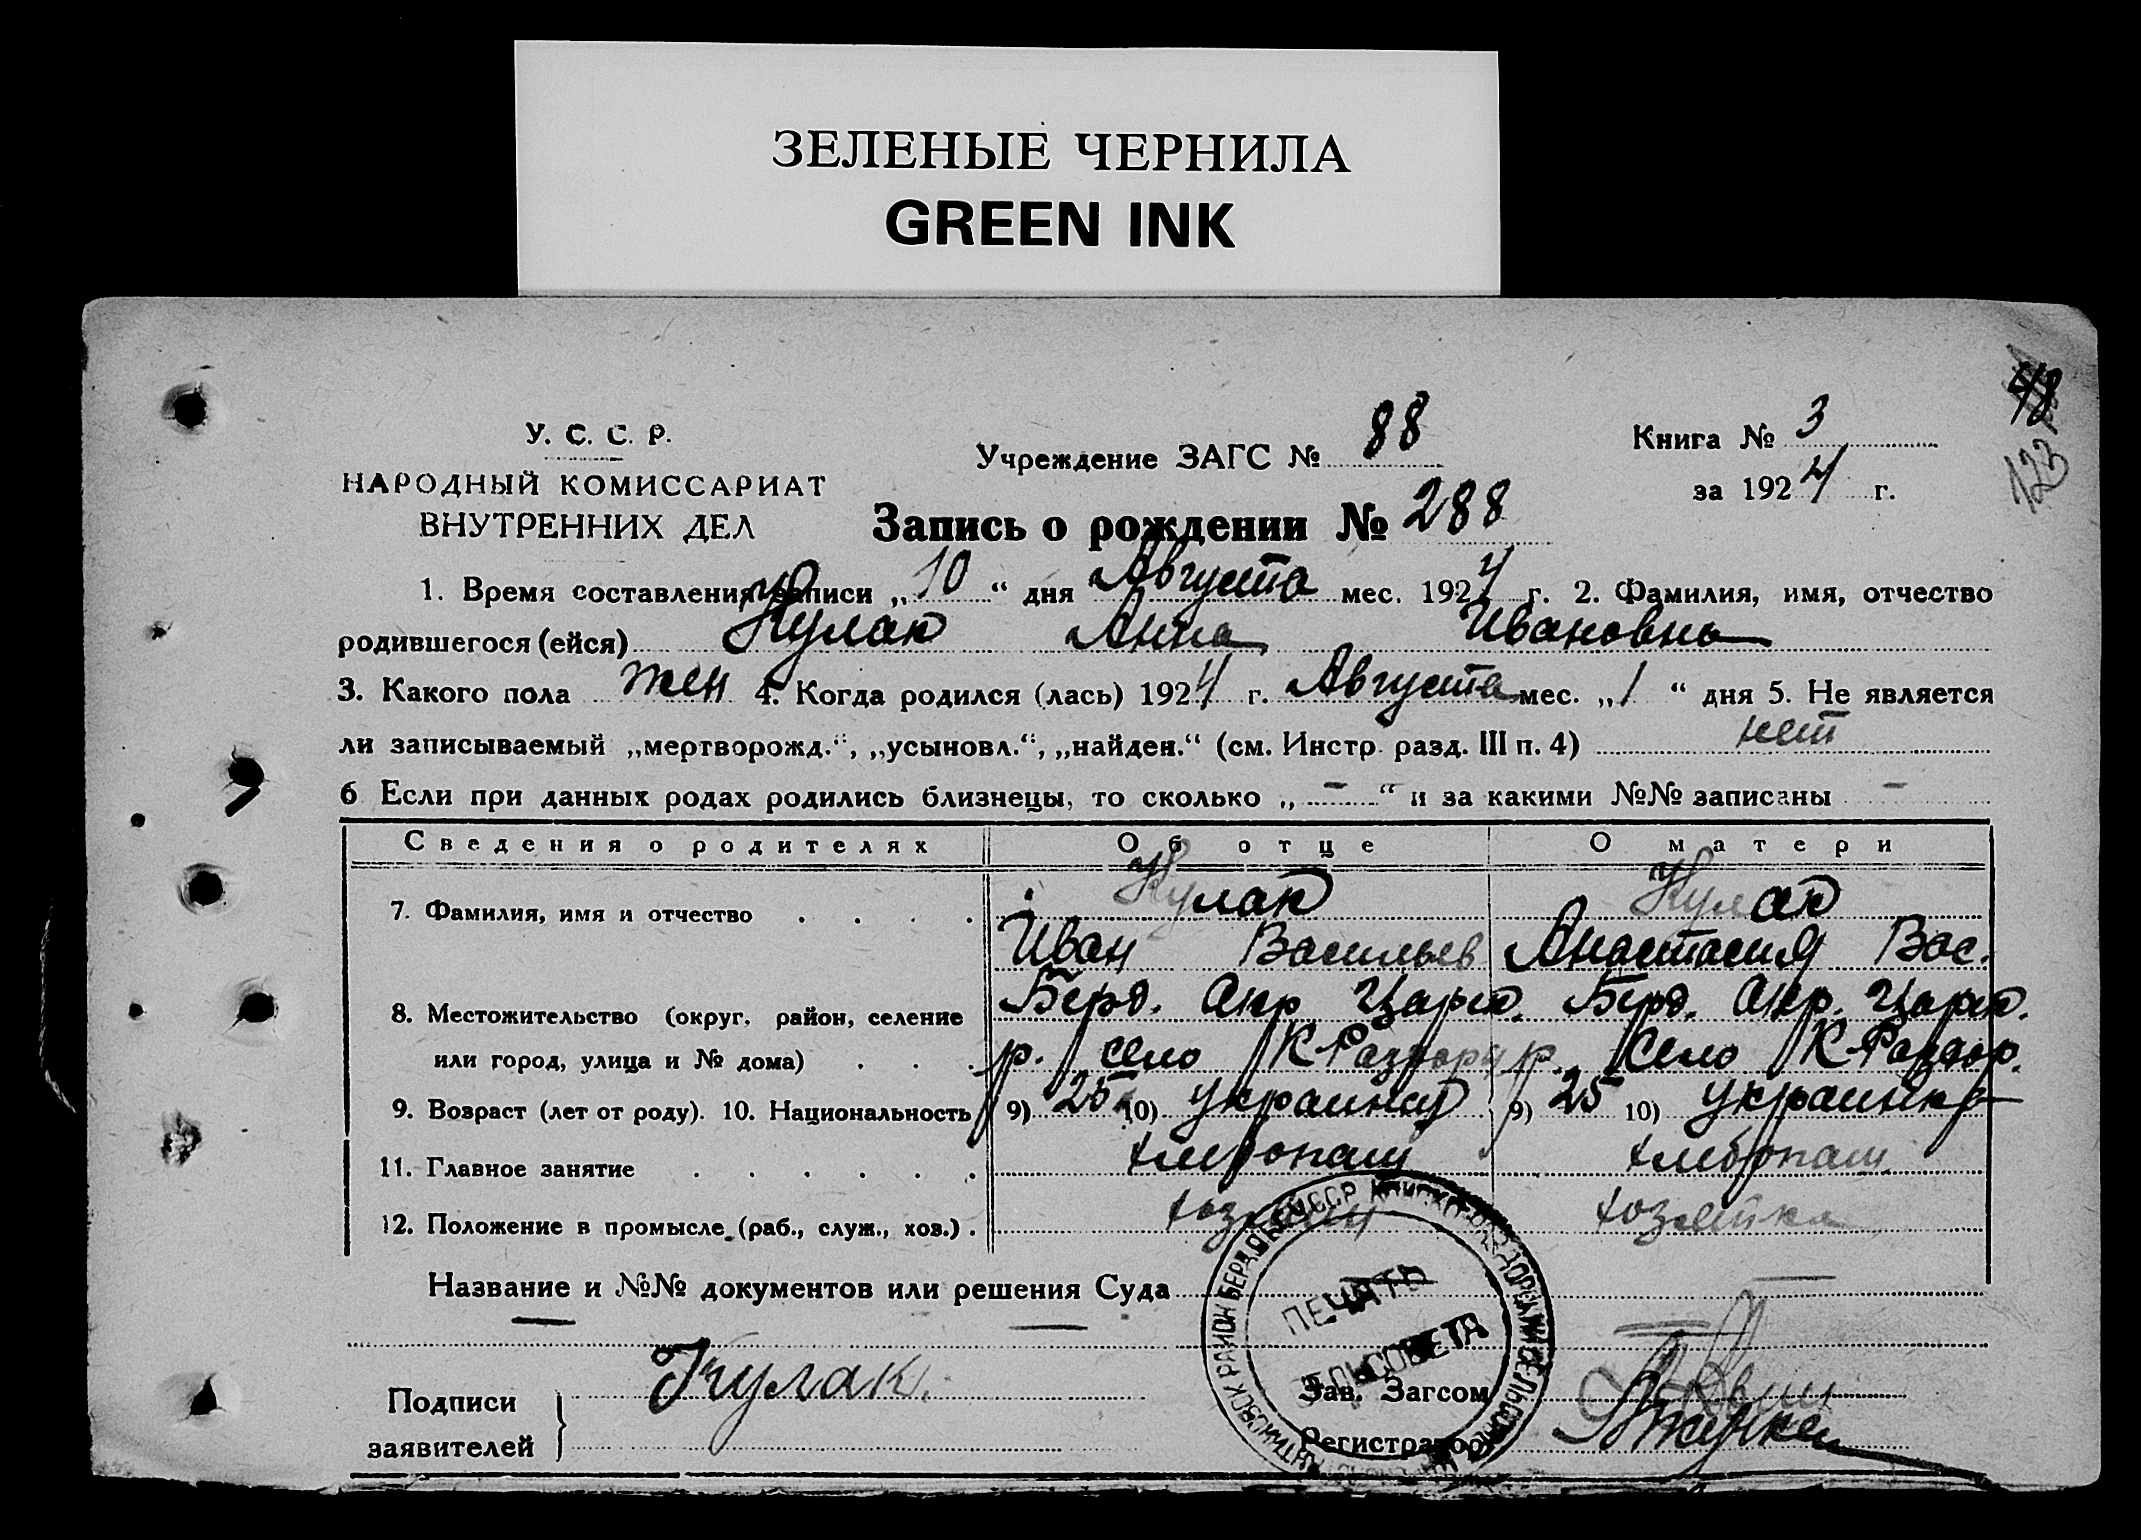 ЗЕЛЕНЫЕ ЧЕРНИЛА
GREEN INK
У. С. С. Р.
НАРОДНЫЙ КОМИССАРИАТ
ВНУТРЕННИХ ДЕЛ
Учреждение ЗАГС № 88
Книга № 3
за 1924 г.
123
Запись о рождении № 288
1. Время составления записи „10“ дня Августа мес. 1924 г. 2. Фамилия, имя, отчество
родившегося (ейся) Кулак Анна Ивановна
3. Какого пола жен 4. Когда родился (лась) 1924 г. Августа мес. „1“ дня 5. Не является
ли записываемый „мертворожд.“, „усыновл.“, „найден.“ (см. Инстр. разд. III п. 4) нет
6 Если при данных родах родились близнецы, то сколько „-“ и за какими №№ записаны -
Сведения о родителях Об отце О матери
7. Фамилия, имя и отчество . . . . Кулак Кулак
Иван Васильев Анастасия Вас.
8. Местожительство (округ, район, селение Берд. Окр. Царек. Берд. Окр. Царек.
или город, улица и № дома) . . . р. село К-Раздоры р. Село К-Раздор.
9. Возраст (лет от роду). 10. Национальность 9) 25 10) украинец 9) 25 10) украинка
11. Главное занятие . . . . . . хлебопаш хлебопаш.
12. Положение в промысле (раб., служ., хоз.) . хозяин хозяйка
Название и №№ документов или решения Суда
ПЕЧАТЬ
СЕЛЬСОВЕТА
Подписи
заявителей
Кулак.
Зав. Загсом
Регистратор